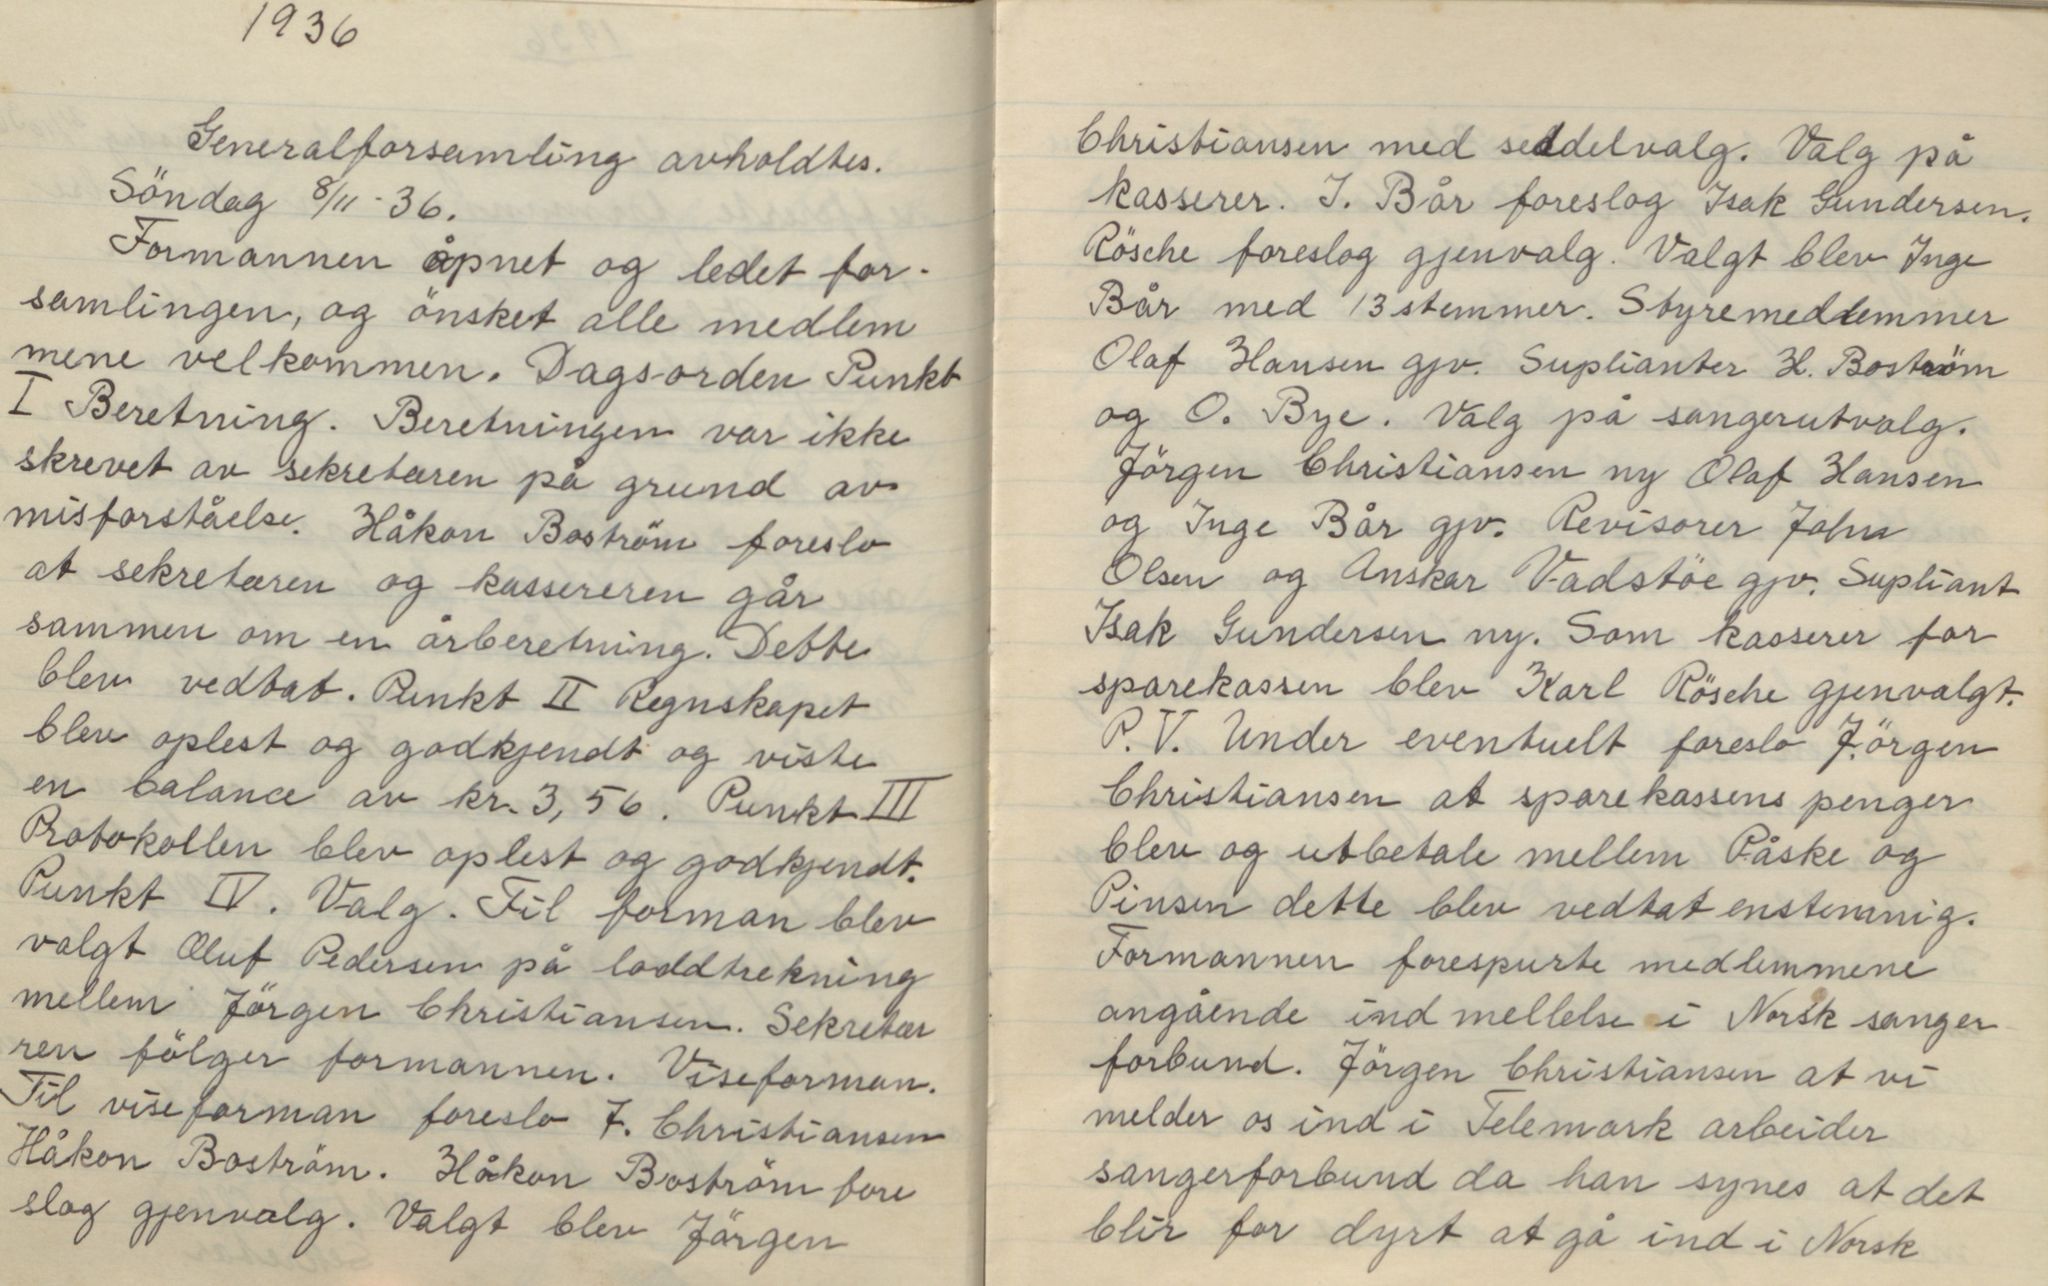 1936
Generalforsamling avholdtes.
Söndag 8/11-36.
Formannen åpnet og ledet for-
samlingen, og önsket alle medlem
mene velkommen. Dagsorden Punkt
I Beretning. Beretningen var ikke
skrevet av sekretæren på grund av
misforståelse. Håkon Boström foreslo
at sekretæren og kassereren går
sammen om en årberetning. Dette
blev vedtat. Punkt II Regnskapet
blev oplest og godkjendt og viste
en balance av kr. 3,56. Punkt III
Protokollen blev oplest og godkjendt.
Punkt IV. Valg. Til forman blev
valgt Oluf Pedersen på loddtrekning
mellem Jörgen Christiansen. Sekretær
ren fölger formannen. Viseforman.
Til viseforman foreslo J. Christiansen
Håkon Boström. Håkon Boström fore
slog gjenvalg. Valgt blev Jörgen
Christiansen med seddelvalg. Valg på
kasserer. I. Bår foreslog Isak Gundersen.
Rösche foreslog gjenvalg. Valgt blev Inge
Bår med 13 stemmer. Styremedlemmer
Olaf Hansen gjv. Suplianter H. Boström
og O. Bye. Valg på sangerutvalg.
Jörgen Christiansen ny Olaf Hansen
og Inge Bår gjv. Revisorer John
Olsen og Anskar Vadstöe gjv. Supliant
Isak Gundersen ny. Som kasserer for
sparekassen blev Karl Rösche gjenvalgt.
P. V. Under eventuelt foreslo Jörgen
Christiansen at sparekassens penger
blev og utbetale mellem Påske og
Pinsen dette blev vedtat enstemnig.
Formannen forespurte medlemmene
angående ind mellelse i Norsk sanger
forbund. Jörgen Christiansen at vi
melder os ind i Telemark arbeider
sangerforbund da han synes at det
blir for dyrt at gå ind i Norsk